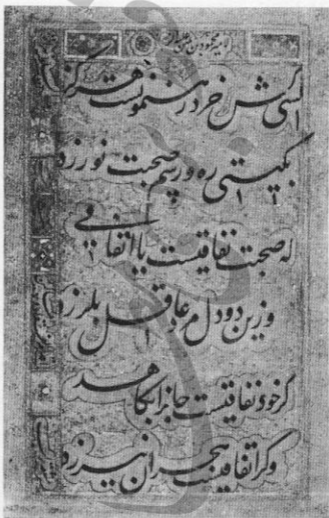 امیر محمود بن
کسی کش خرد رهنمونست هرگز
بگیتی ره و رسم صحبت نورزد
که صحبت نفاقیست یا اتفاقی
وزین دو دل مرد عاقل بلرزد
گر خود نفاقیست جانرا بکاهد
وگر اتفاقیست بهجران نیرزد